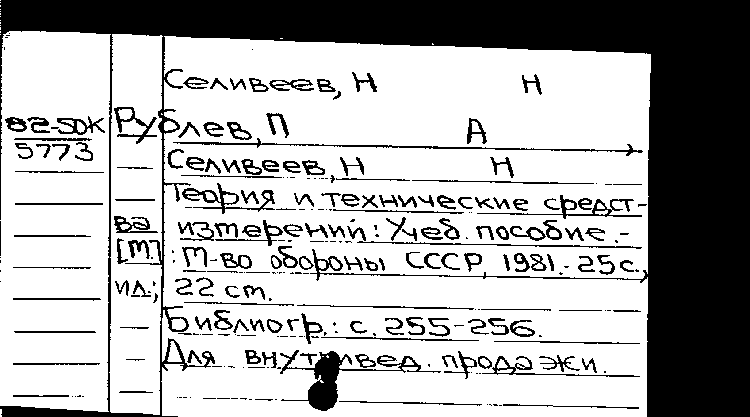 Селивеев, Н Н
82-50К Рублев, П А
5773 Селивеев, Н Н
Теория и технические средст-
ва измерений: Учеб. пособие.-
[М.] : М-во обороны СССР, 1981.- 25 с.,
ил.; 22 cm.
Библиогр.: с. 255-256.
Для внутривед. продажи.